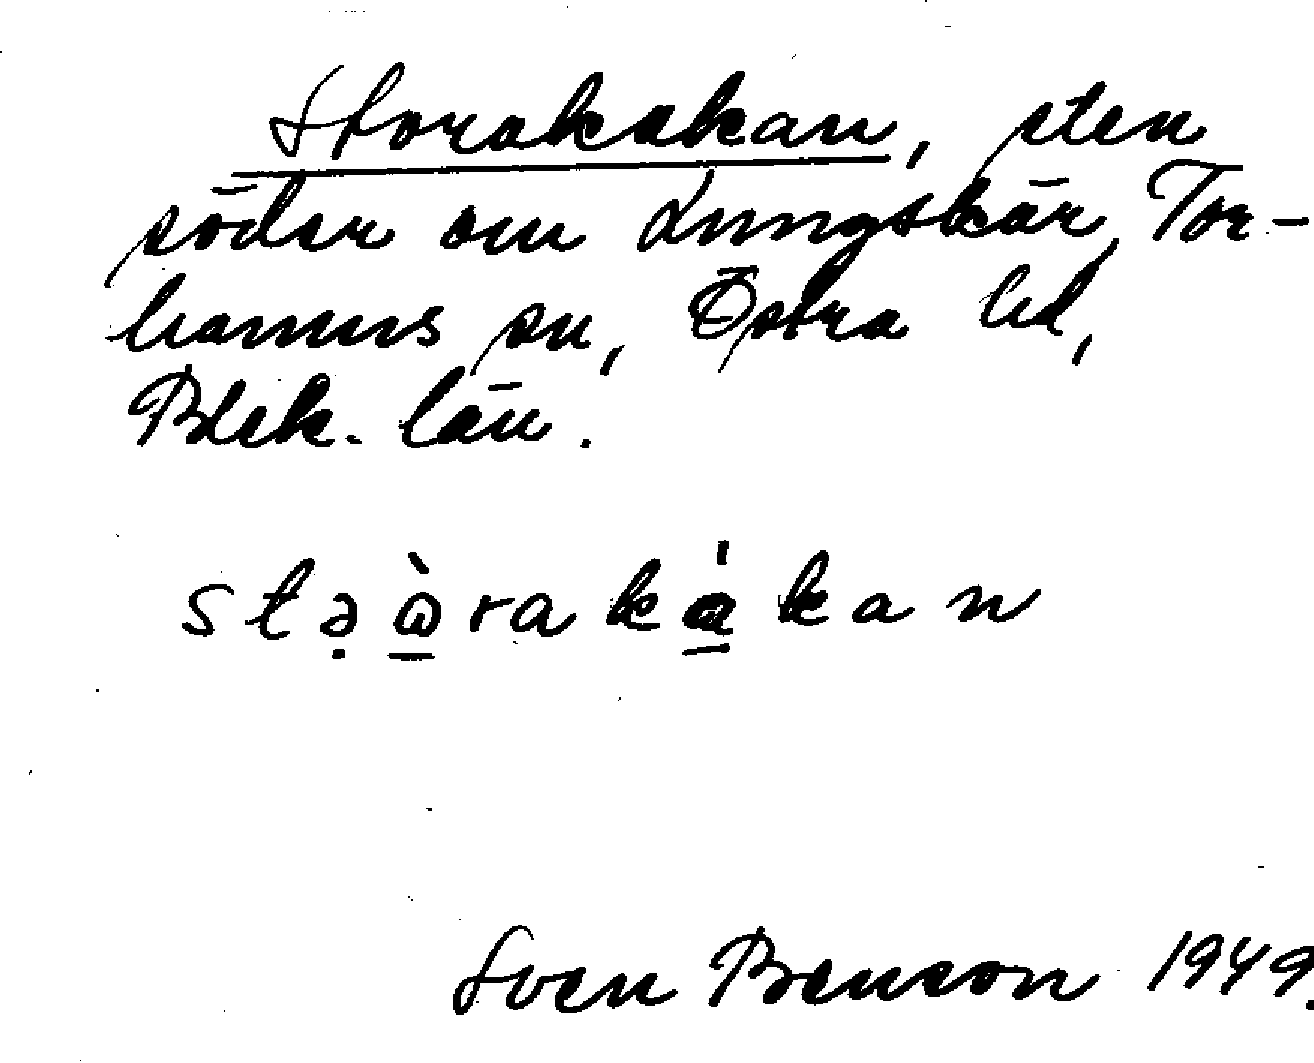 Storakakan, sten
söder om Lungskär, Tor-
hamns sn, Östra hd,
Blek. län.
stə̣ὼ̲rakά̲kan
Sven Benson 1949.